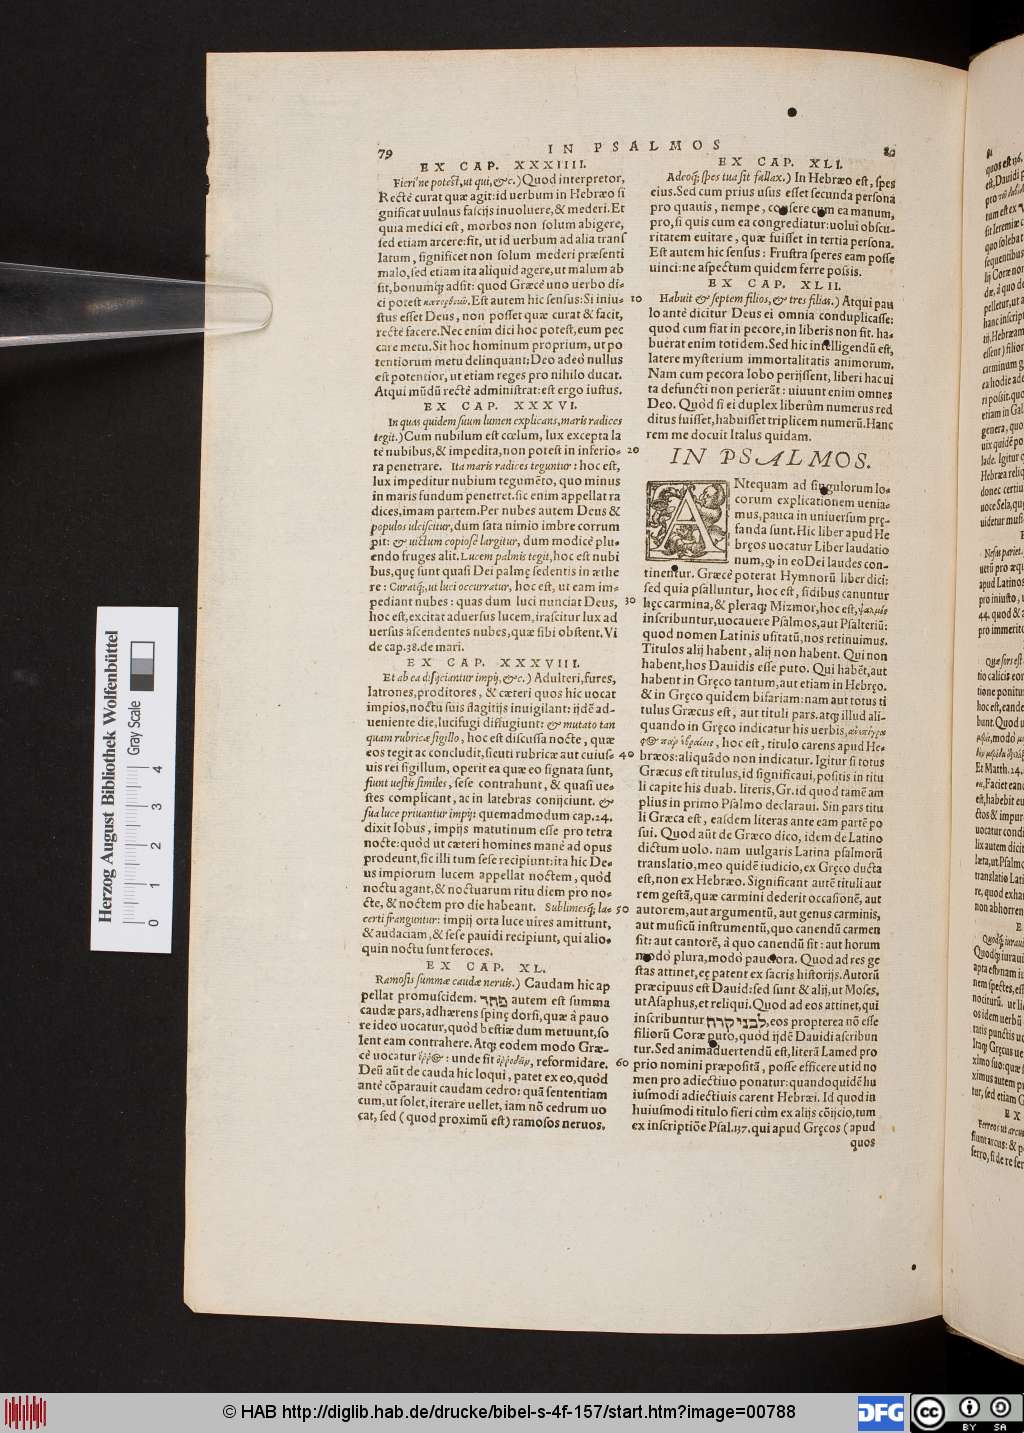 IN PSALMOS
79
EX CAP. XXXIIII.
Fieri'ne potest, ut qui, &c.) Quod interpretor,
Rectè curat quæ agit: id uerbum in Hebræo si
gnificat uulnus fascijs inuoluere, & mederi. Et
quia medici est, morbos non solum abigere,
sed etiam arcere: fit, ut id uerbum ad alia trans
latum, significet non solum mederi præsenti
malo, sed etiam ita aliquid agere, ut malum ab
sit, bonumq́; adsit: quod Græcè uno uerbo di-
ci potest Est autem hic sensus: Si iniu-
stus esset Deus, non posset quæ curat & facit,
rectè facere. Nec enim dici hoc potest, eum pec
care metu. Sit hoc hominum proprium, ut po
tentiorum metu delinquant: Deo adeò nullus
est potentior, ut etiam reges pro nihilo ducat.
Atqui mũdũ rectè administrat: est ergo iustus.
EX CAP. XXXVI.
In quas quidem suum lumen explicans, maris radices
tegit.) Cum nubilum est cœlum, lux excepta la
tè nubibus, & impedita, non potest in inferio-
ra penetrare. Ita maris radices teguntur: hoc est,
lux impeditur nubium tegumẽto, quo minus
in maris fundum penetret. sic enim appellat ra
dices, imam partem. Per nubes autem Deus &
populos ulciscitur, dum sata nimio imbre corrum
pit: & uictum copiosè largitur, dum modicè plu-
endo fruges alit. Lucem palmis tegit, hoc est nubi
bus, quę sunt quasi Dei palmę sedentis in æthe
re: Curatq́;, ut luci occurratur, hoc est, ut eam im-
pediant nubes: quas dum luci nunciat Deus,
hoc est, excitat aduersus lucem, irascitur lux ad
uersus ascendentes nubes, quæ sibi obstent. Vi
de cap. 38. de mari.
EX CAP. XXXVIII.
Et ab ea disijciantur impij, &c.) Adulteri, fures,
latrones, proditores, & cæteri quos hic uocat
impios, noctu suis flagitijs inuigilant: ijdẽ ad-
ueniente die, lucifugi diffugiunt: & mutato tan
quam rubricæ sigillo, hoc est discussa nocte, quæ
eos tegit ac concludit, sicuti rubricæ aut cuius-
uis rei sigillum, operit ea quæ eo signata sunt,
fiunt uestis similes, sese contrahunt, & quasi ue-
stes complicant, ac in latebras conijciunt. &
sua luce priuantur impij: quemadmodum cap. 24.
dixit Iobus, impijs matutinum esse pro tetra
nocte: quòd ut cæteri homines mane ad opus
prodeunt, sic illi tum sese recipiunt: ita hic De-
us impiorum lucem appellat noctem, quòd
noctu agant, & noctuarum ritu diem pro no-
cte, & noctem pro die habeant. Sublimesq́; la-
certi franguntur: impij orta luce uires amittunt,
& audaciam, & sese pauidi recipiunt, qui alio-
quin noctu sunt feroces.
EX CAP. XL.
Ramosis summæ caudæ neruis.) Caudam hic ap
pellat promuscidem. פחד autem est summa
caudæ pars, adhærens spinę dorsi, quæ à pauo
re ideo uocatur, quòd bestiæ dum metuunt, so
lent eam contrahere. Atq; eodem modo Græ-
cè uocatur : unde fit , reformidare.
Deũ aũt de cauda hic loqui, patet ex eo, quòd
antè cõparauit caudam cedro: quã sententiam
cum, ut solet, iterare uellet, iam nõ cedrum uo
cat, sed (quod proximũ est) ramosos neruos.
10
20
30
40
50
60
80
EX CAP. XLI.
Adeoq́; spes tua sit fallax.) In Hebræo est, spes
eius. Sed cum prius usus esset secunda persona
pro quauis, nempe, consere cum ea manum,
pro, si quis cum ea congrediatur: uolui obscu-
ritatem euitare, quæ fuisset in tertia persona.
Est autem hic sensus: Frustra speres eam posse
uinci: ne aspectum quidem ferre possis.
EX CAP. XLII.
Habuit & septem filios, & tres filias.) Atqui pau
lo antè dicitur Deus ei omnia conduplicasse:
quod cum fiat in pecore, in liberis non fit. ha-
buerat enim totidem. Sed hic intelligendũ est,
latere mysterium immortalitatis animorum.
Nam cum pecora Iobo perijssent, liberi hac ui
ta defuncti non perierãt: uiuunt enim omnes
Deo. Quòd si ei duplex liberûm numerus red
ditus fuisset, habuisset triplicem numerũ. Hanc
rem me docuit Italus quidam.
IN PSALMOS.
ANtequam ad singulorum lo-
corum explicationem uenia-
mus, pauca in uniuersum prę-
fanda sunt. Hic liber apud He
bręos uocatur Liber laudatio
num, q̇ in eo Dei laudes con-
tinentur. Græcè poterat Hymnorũ liber dici:
sed quia psalluntur, hoc est, fidibus canuntur
hęc carmina, & pleraq; Mizmor, hoc est,
inscribuntur, uocauere Psalmos, aut Psalteriũ:
quod nomen Latinis usitatũ, nos retinuimus.
Titulos alij habent, alij non habent. Qui non
habent, hos Dauidis esse puto. Qui habẽt, aut
habent in Gręco tantum, aut etiam in Hebręo.
& in Gręco quidem bifariam: nam aut totus ti
tulus Græcus est, aut tituli pars. atq; illud ali-
quando in Gręco indicatur his uerbis,
, hoc est, titulo carens apud He-
bræos: aliquãdo non indicatur. Igitur si totus
Græcus est titulus, id significaui, positis in titu
li capite his duab. literis, Gr. id quod tamẽ am
plius in primo Psalmo declaraui. Sin pars titu
li Græca est, easdem literas ante eam partẽ po
sui. Quod aũt de Græco dico, idem de Latino
dictum uolo. nam uulgaris Latina psalmorũ
translatio, meo quidẽ iudicio, ex Gręco ducta
est, non ex Hebræo. Significant autẽ tituli aut
rem gestã, quæ carmini dederit occasionẽ, aut
autorem, aut argumentũ, aut genus carminis,
aut musicũ instrumentũ, quo canendũ carmen
sit: aut cantorẽ, à quo canendũ sit: aut horum
modò plura, modò pauciora. Quod ad res ge
stas attinet, eę patent ex sacris historijs. Autorũ
præcipuus est Dauid: sed sunt & alij, ut Moses,
ut Asaphus, et reliqui. Quod ad eos attinet, qui
inscribuntur לבני קרח, eos propterea nõ esse
filiorũ Coræ puto, quòd ijdẽ Dauidi ascribun
tur. Sed animaduertendũ est, literã Lamed pro
prio nomini præpositã, posse efficere ut id no
men pro adiectiuo ponatur: quandoquidẽ hu
iusmodi adiectiuis carent Hebræi. Id quod in
huiusmodi titulo fieri cùm ex alijs cõijcio, tum
ex inscriptiõe Psal. 137. qui apud Gręcos (apud
quos
Herzog August Bibliothek Wolfenbüttel
Gray Scale
0 1 2 3 4
© HAB http://diglib.hab.de/drucke/bibel-s-4f-157/start.htm?image=00788
DFG
cc
BY SA